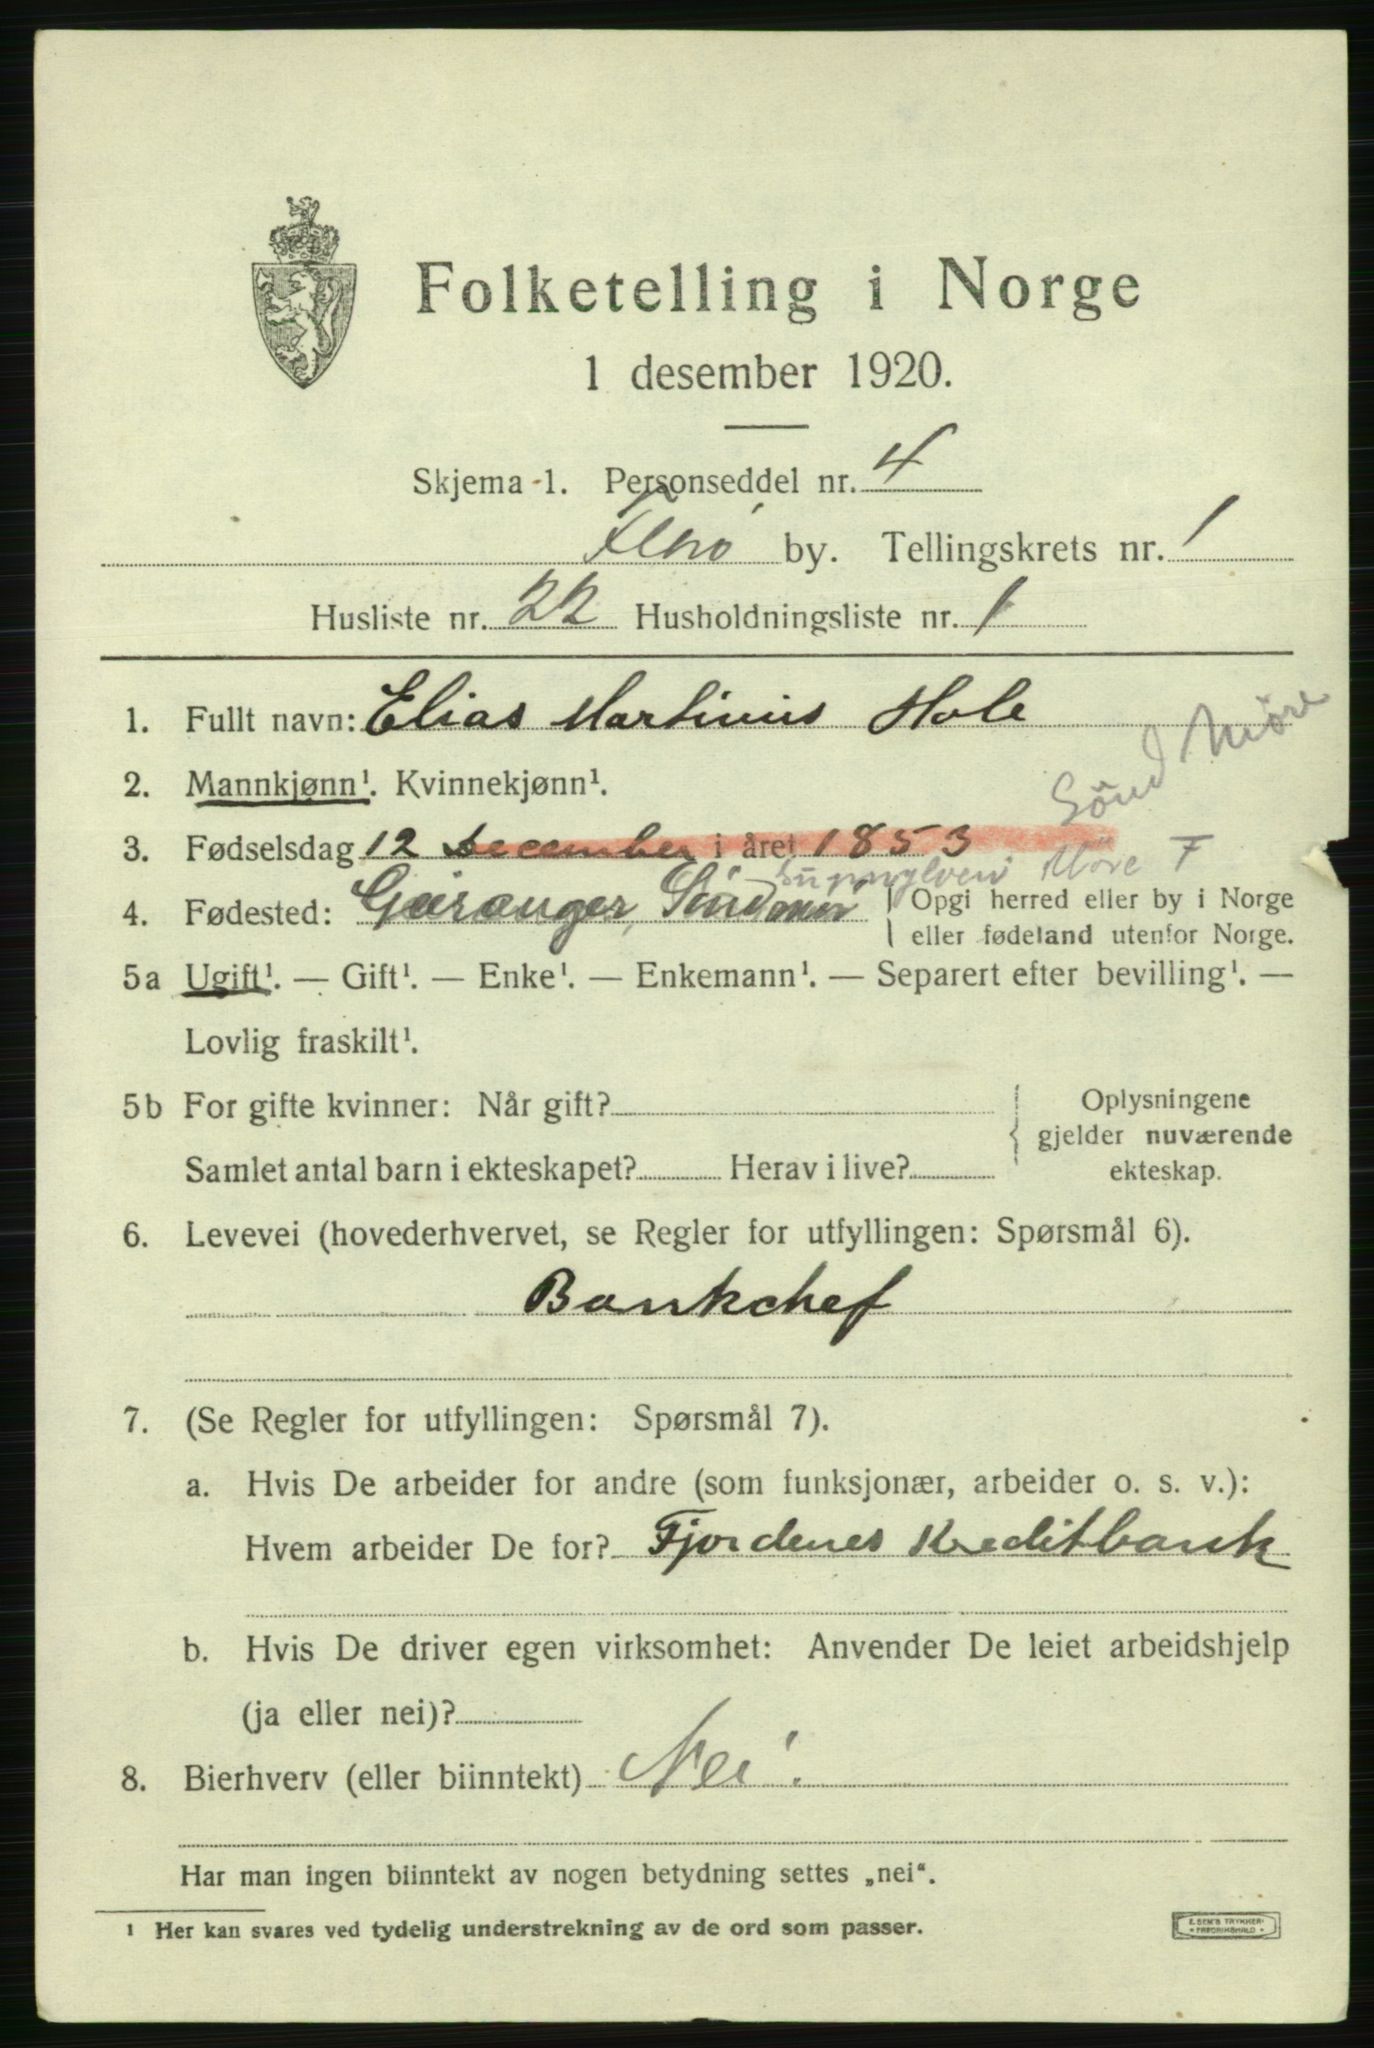 Folketelling i Norge
1 desember 1920.
Skjema 1. Personseddel nr. 4
Florø by. Tellingskrets nr. 1
Husliste nr. 22 Husholdningsliste nr. 1
1. Fullt navn: Elias Martinius Hole
Sönd Möre
2. Mannkjønn¹. Kvinnekjønn¹.
3. Fødselsdag 12 december i året 1853
Sunnylven Möre F
4. Fødested: Geiranger, Söndmör Opgi herred eller by i Norge
eller fødeland utenfor Norge.
5a Ugift¹. — Gift¹. — Enke¹. — Enkemann¹. — Separert efter bevilling¹. —
Lovlig fraskilt¹.
5b For gifte kvinner: Når gift? Oplysningene
gjelder nuværende
Samlet antal barn i ekteskapet? Herav i live? ekteskap.
6. Levevei (hovederhvervet, se Regler for utfyllingen: Spørsmål 6).
Bankchef
7. (Se Regler for utfyllingen: Spørsmål 7).
a. Hvis De arbeider for andre (som funksjonær, arbeider o. s. v.):
Hvem arbeider De for? Fjordenes Kreditbank
b. Hvis De driver egen virksomhet: Anvender De leiet arbeidshjelp
(ja eller nei)?
8. Bierhverv (eller biinntekt) Nei.
Har man ingen biinntekt av nogen betydning settes „nei“.
¹ Her kan svares ved tydelig understrekning av de ord som passer.
E. SEM'S TRYKKERI
FREDRIKSHALD